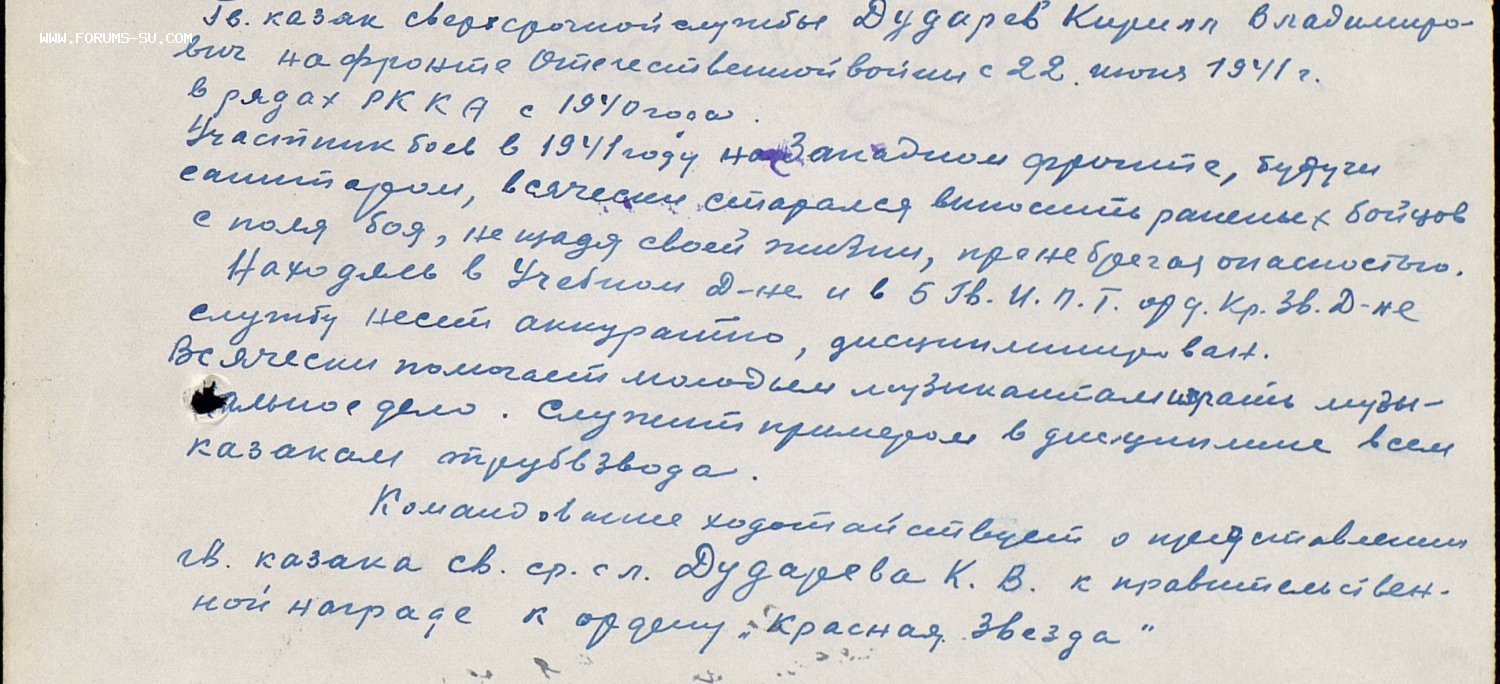 WWW.FORUMS-SU.COM
Гв. казак сверхсрочной службы Дударев Кирилл Владимиро-
вич на фронте Отечественной войны с 22 июня 1941 г.
в рядах РККА с 1940 года.
Участник боев в 1941 году на Западном фронте, будучи
санитаром, всячески старался выносить раненых бойцов
с поля боя, не щадя своей жизни, пренебрегая опасностью.
Находясь в Учебном Д-не и в 5 Гв. И. П. Т. орд. Кр. Зв. Д-не
службу несет аккуратно, дисциплинирован.
Всячески помогает молодым музыкантам играть музы-
кальное дело. Служит примером в дисциплине всем
казакам трубвзвода.
Командование ходотайствует о представлении
гв. казака св. ср. сл. Дударева К. В. к правительствен-
ной награде к ордену „Красная Звезда"